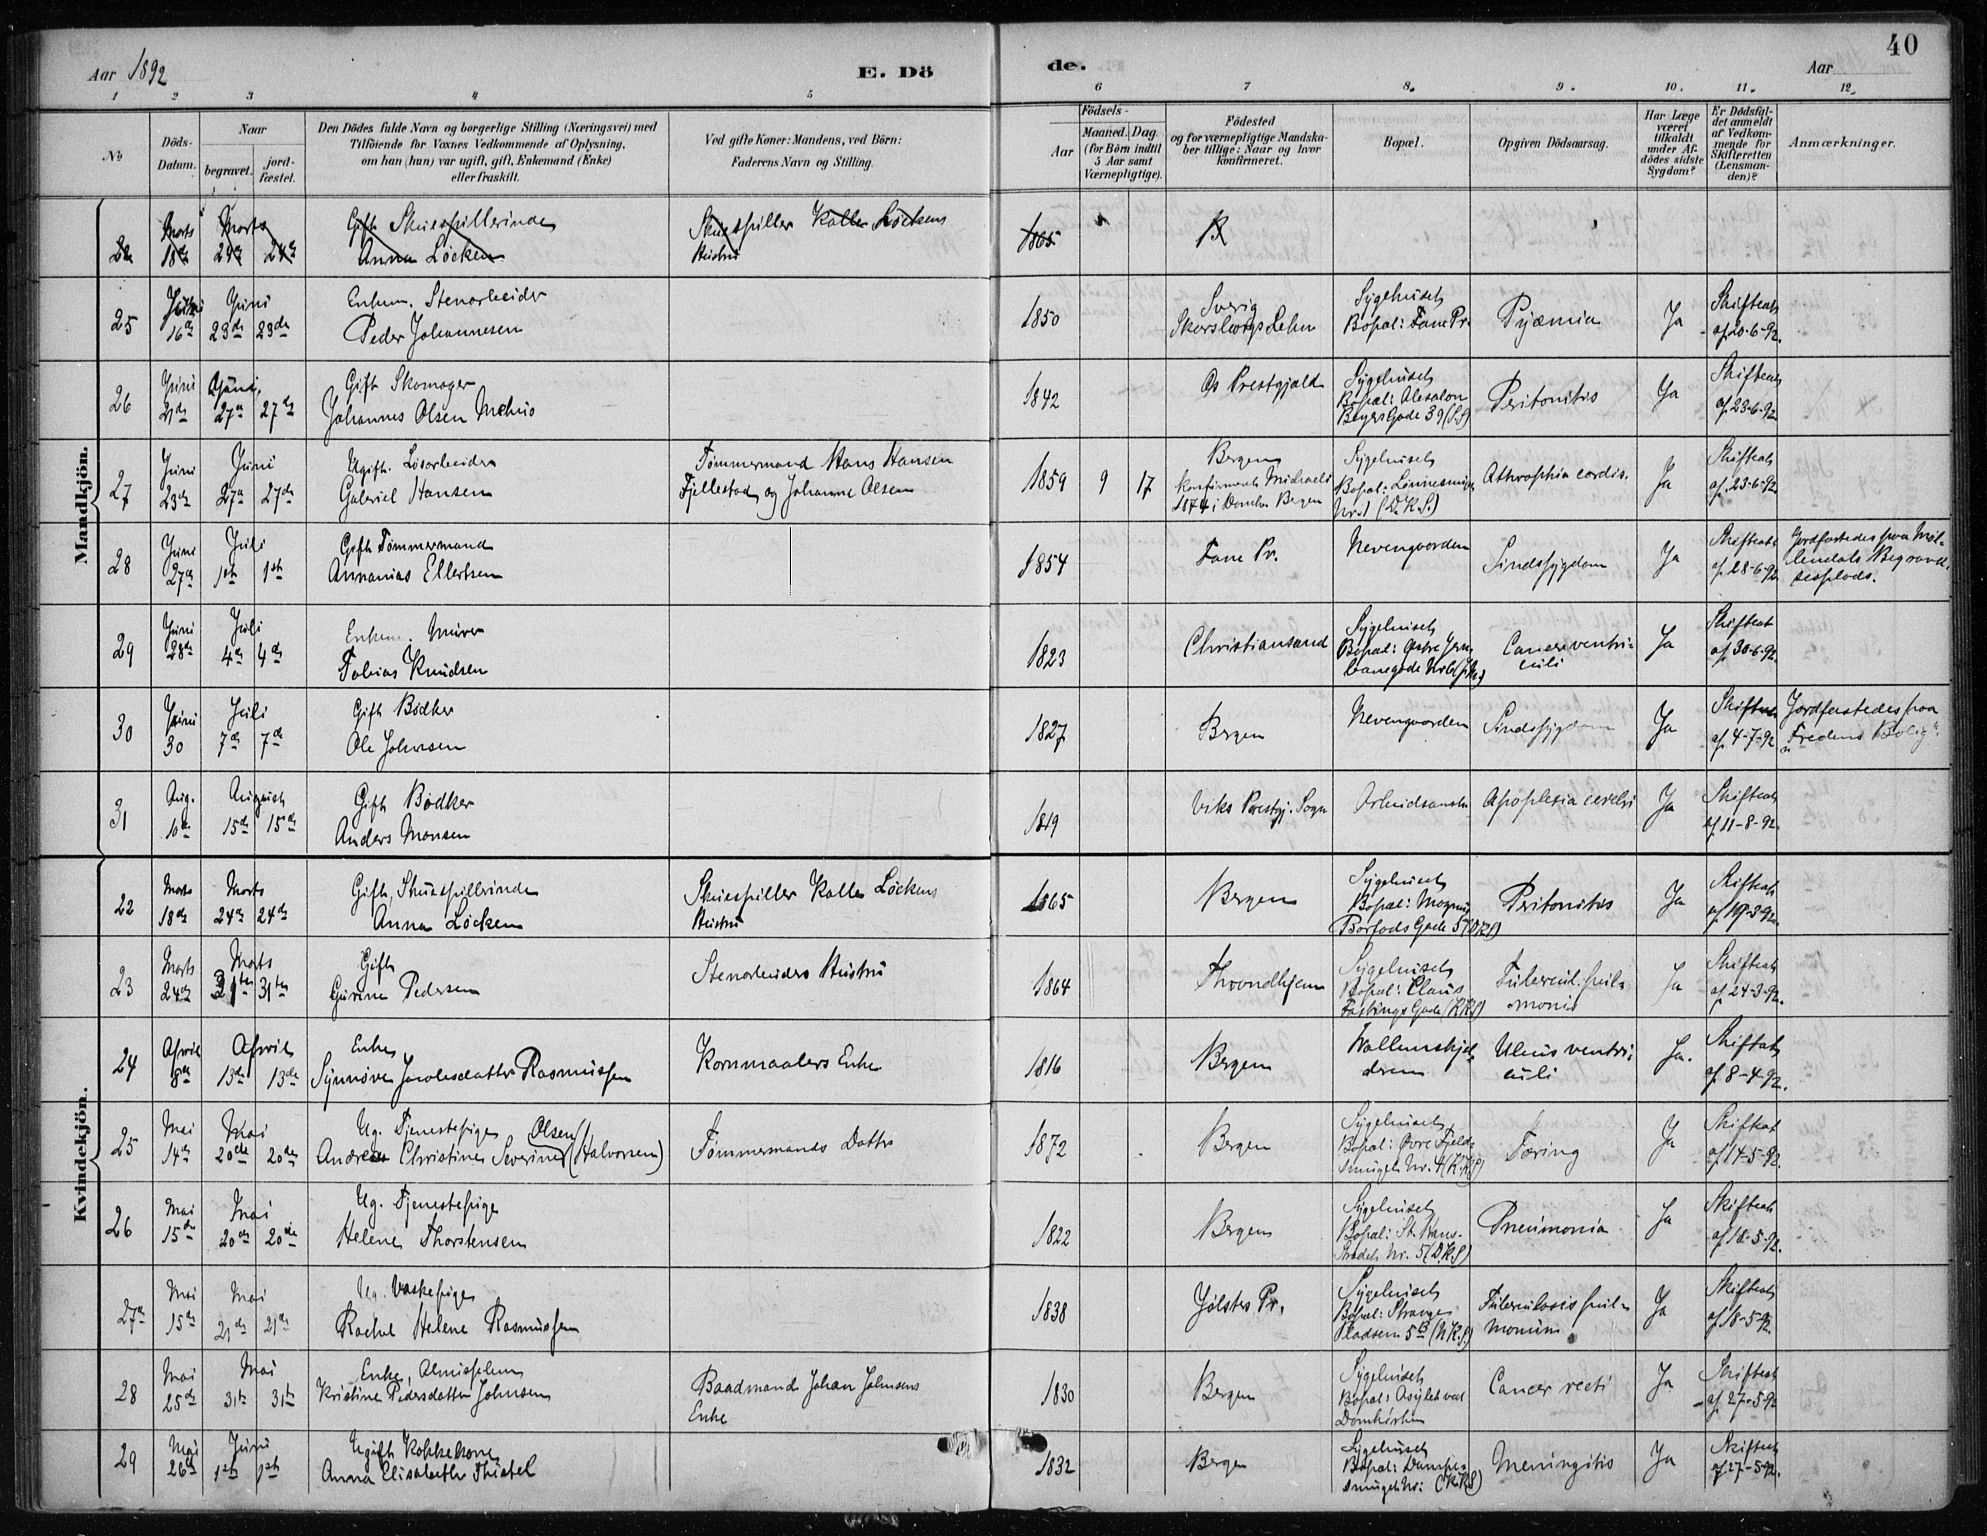 Aar 1892
E. Dö
de.
Aar
40
1 2 3 4 5 6 7 8. 9. 10. 11. 12.
No
Döds-Datum.
Naar
begravet.
jord-fæstet.
Den Dödes fulde Navn og borgerlige Stilling (Næringsvei) med
Tilföiende for Voxnes Vedkommende af Oplysning,
om han (hun) var ugift, gift, Enkemand (Enke)
eller fraskilt.
Ved gifte Koner: Mandens, ved Börn:
Faderens Navn og Stilling.
Födsels-
Aar
Maaned. Dag.
(for Börn indtil
5 Aar samt
Værnepligtige).
Födested
og for værnepligtige Mandska-
ber tillige: Naar og hvor
konfirmeret.
Bopæl.
Opgiven Dödsaarsag.
Har Læge
været
tilkaldt
under Af-
dödes sidste
Sygdom?
Er Dødsfal-
det anmeldt
af Vedkom-
mende for
Skifteretten
(Lensman-
den)?
Anmærkninger.
Mandkjön.
22 Marts 18de Marts 24de 24de Gift Skuespillerinde
Anna Löcken
Skuespiller Kalle Löckens
Hustru
1865 B
25 Juni 16de Juni 23de 23de Enkem. Stenarbeider
Peder Johannesen
1850 Sverig
Skarsborgs Lehn
Sygehuset
Bopæl: Fane Pr.
Pyæmia Ja Skifteatt.
af 20-6-92.
26 Juni 21de Juni 27de 27de Gift Skomager
Johannes Olsen Mehus
1842 Os Prestgjæld Sygehuset
Bopæl: Absalon
Beyers Gade 39
Peritonitis Ja Skifteatt.
af 23-6-92
27 Juni 23de Juni 27de 27de Ugift. Løsarbeider
Gabriel Hansen
Tømmermand Hans Hansen
Fjellestad og Johanne Olsen
1859 9 17 Bergen
konfirmeret Michaeli
1874 i Domk. Bergen
Sygehuset
Nr. 1 (D.K.S.)
Athrophia cordis. Ja Skifteatt.
af 23-6-92
28 Juni 27de Juli 1ste 1ste Gift Tømmermand
Annanias Ellertsen
1854 Fane Pr. Nevengaarden Sindssygdom Ja Skifteatt.
af 28-6-92
Jordfæstedes paa Møl-
lendals Begravel-
sesplads.
29 Juni 28de Juli 4de 4de Enkem. Murer
Tobias Knudsen
1823 Christiansand Sygehuset
Bopæl: Østre Jern-
banegade
Cancer ventri-
culi
Ja Skifteatt
af 30-6-92.
30 Juni 30 Juli 7de 7de Gift Bødker
Ole Johnsen
1827 Bergen Nevengaarden Sindssygdom Ja Skifteatt
af 4-7-92
Jordfæstedes paa
"Fredens Bolig".
31 Aug. 10de August 15de 15de Gift Bødker
Anders Monsen
1819 Viks Prestgj. Sogn Arbeidsanst. Apoplexia cerebri Ja Skifteatt.
af 11-8-92.
Kvindekjön.
22 Marts 18de Marts 24de 24de Gift, Skuespillerinde
Anna Löcken
Skuespiller Kalle Löckens
Hustru
1865 Bergen Sygehuset
Bopæl: Magnus
Barfods Gade 5
Peritonitis Ja Skifteatt.
af 19-3-92.
23 Marts 24de Marts 31te 31te Gift
Gurine Pedersen
Stenarbeiders Hustru
1864 Throndhjem Sygehuset
Bopæl: Claus
Fastings Gade (K.K.S)
Tubercul. pul-
monis
Ja Skifteatt
af 24-3-92.
24 April 8de April 13de 13de Enke
Synnøve Jacobsdatter Rasmussen
Kornmaalers Enke
1816 Bergen Ulcus ventri-
culi
Ja. Skifteatt
af 8-4-92.
25 Mai 14de Mai 20de 20de Ug. Tjenestepige Olsen
Andrea Christine Severine (Halvorsen)
Tømmermands Datter
1872 Bergen Sygehuset
Bopæl: Øvre Fjeld-
smuget Nr. 4 (K.K.S)
Tæring Ja Skifteatt
af 14-5-92.
26 Mai 15de Mai 20de 20de Ug. Tjenestepige
Helene Thorstensen
1822 Bergen Sygehuset
Bopæl: St. Hans-
strædet Nr. 5 (D.K.S)
Pneumonia Ja Skifteatt
af 18-5-92.
27de Mai 15de Mai 21de 21de Ug. Vaskepige
Rachel Helene Rasmussen
1838 Jølsters Pr. Sygehuset
Bopæl: Strange
Pladsen 5B (N.K.S)
Tuberculosis pul-
monum
Ja Skifteatt
af 18-5-92.
28 Mai 25de Mai 31te 31te Enke, Almisselem
Kristine Pedersdatter Johnsen
Baadmand Johan Johnsens
Enke
1830 Bergen Sygehuset
Bopæl: Asylet ved
Domkirken
Cancer recti Ja Skifteatt
af 27-5-92
29 Mai 26de Juni 1ste 1ste Ugift Kokkekone
Anna Elisabeth Thistel
1832 Bergen Sygehuset
Bopæl: Dampe-
smuget Nr. (K.K.S)
Meningitis Ja Skifteatt
af 27-5-92.